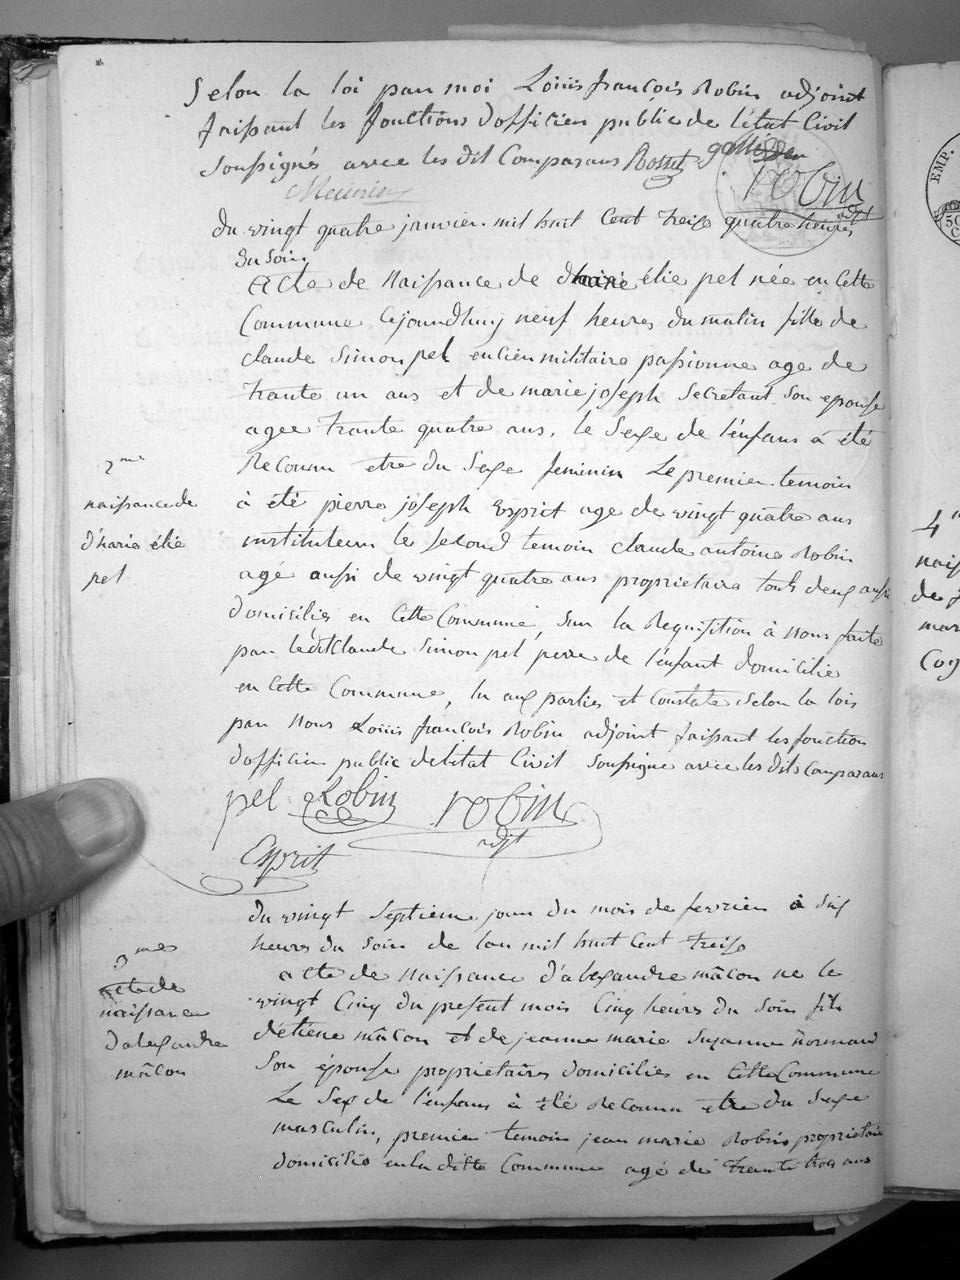 Selon la loi par moi Louis françois Robin adjoint
faissant les fonctions d'officier public de l'état Civil
soussignés avec les dit Comparans Rosset
robin
adjt
Meunier
Du vingt quatre janvier mil huit Cent treize quatre heures
du soir
acte de Naissance de élie pel née en Cette
Commune aujourdhuy neuf heures du matin fille de
claude simon pel encien militaire passionne age de
trante un ans et de marie joseph secretant son epouse
agee trante quatre ans. le sexe de l'enfans à été
Reconnu etre du sexe feminin Le premier temoin
à été pierre joseph Esprit age de vingt quatre ans
instituteur le second temoin claude antoine Robin
agé aussi de vingt quatre ans proprietaire touts deux aussi
domiciliés en Cette Commune, sur la Requisition à Nous faite
par ledit Claude simon pel pere de l'enfant domicilié
en Cette Commune, lu aux parties et constaté selon la lois
par Nous Louis françois Robin adjoint faissant les fonction
d'officier public de l'etat Civil soussigne avec les dits comparans
2me
naissance de
d'harie élie
pel
pel Robin robin
adjt
Esprit
du vingt septieme jour du mois de fevrier à six
heures du soir de lan mil huit Cent treize
acte de Naissance d'alexandre mâcon ne le
vingt Cinq du present mois Cinq heures du soir fils
d'étiene mâcon et de jeanne marie Suzanne Normand
son épouse proprietaires domicilies en Cette Commune
Le sexe de l'enfans à été Reconnu etre du sexe
masculin, premier temoin jean marie Robin proprietaire
domicilié en la ditte Commune agé de trante trois ans
3mes
acte de
naissance
d'alexandre
mâcon
EMP.
50
C
4
de
mar